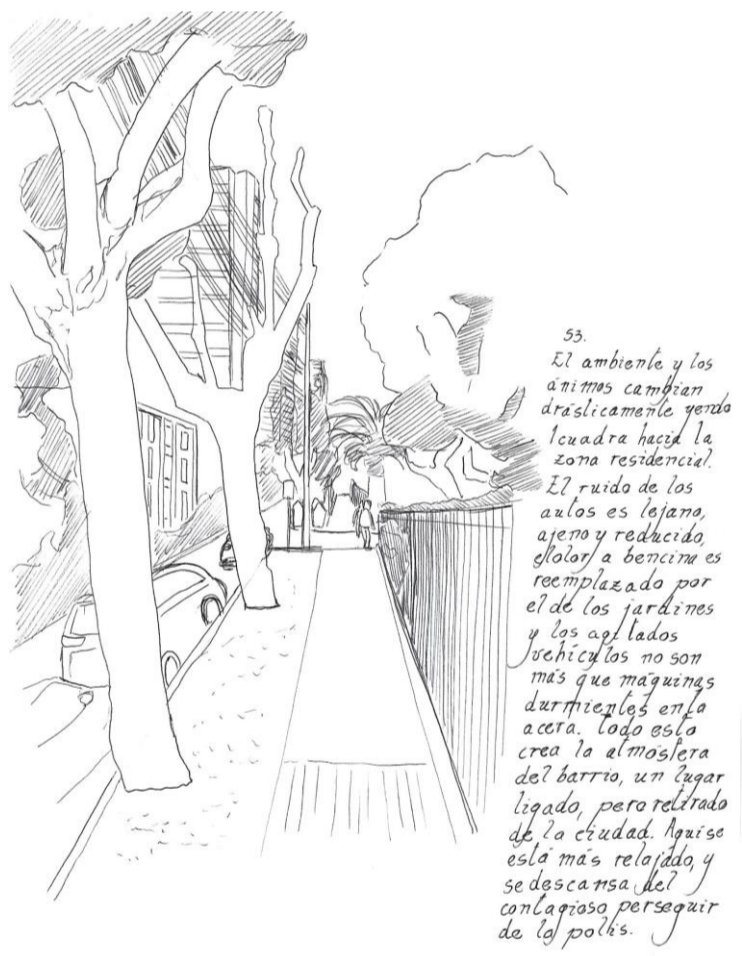 53.
El ambiente y los
ánimos cambian
drásticamente yendo
1 cuadra hacia la
zona residencial.
El ruido de los
autos es lejano,
ajeno y reducido,
el olor a bencina es
reemplazado por
el de los jardines
y los agitados
vehículos no son
más que máquinas
durmientes en la
acera. Todo esto
crea la atmósfera
del barrio, un lugar
ligado, pero retirado
de la ciudad. Aquí se
está más relajado, y
se descansa del
contagioso perseguir
de la polis.